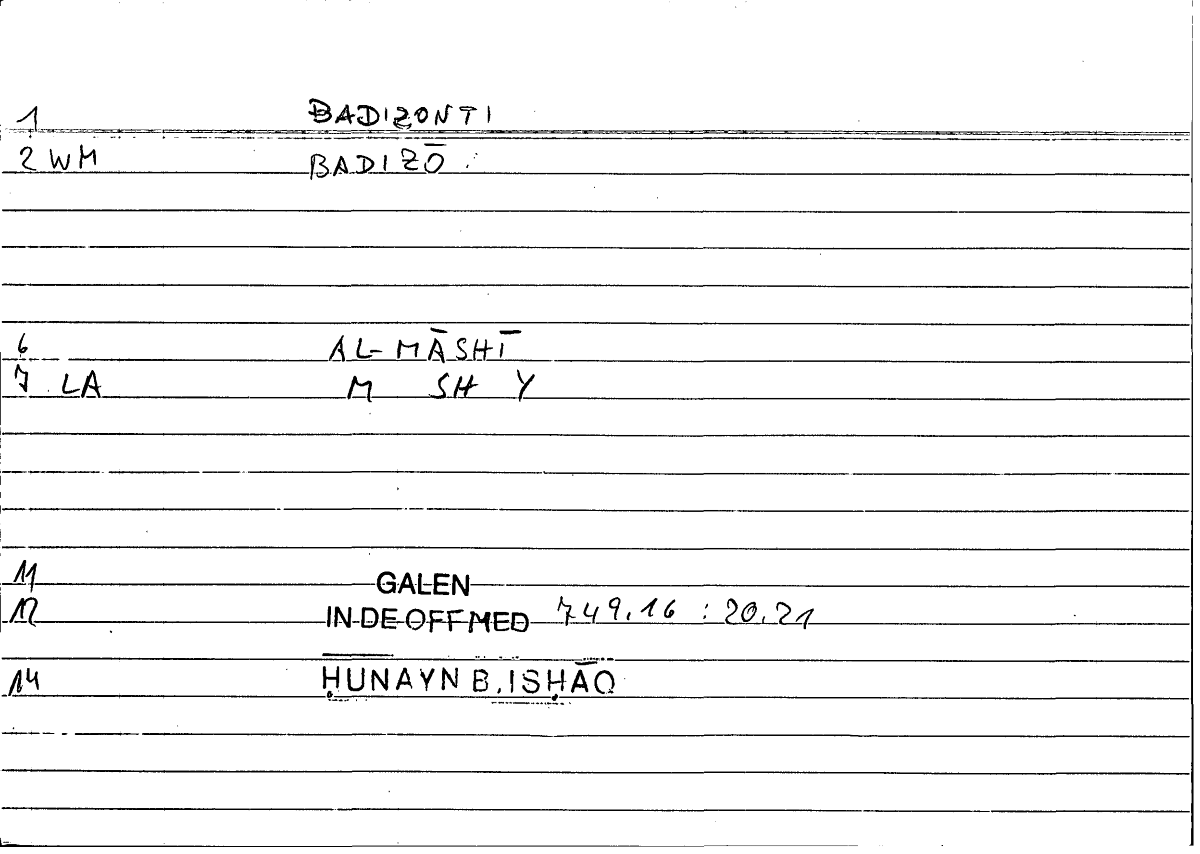 1 BADIZONTI
2 WM BADIZŌ
6 AL-MĀSHĪ
7 LA M SH Y
11 GALEN
12 IN DE OFF MED 749.16 : 20.21
14 ḤUNAYN B. ISḤĀQ